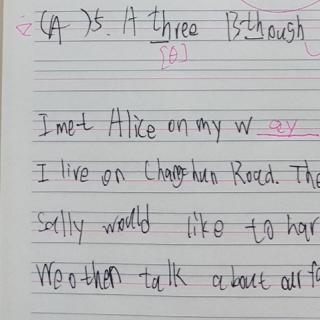 (A )5. A three B though
[θ]
I met Alice on my way
I live on Changhun Road. The
Sally would like to har
We often talk about our fa